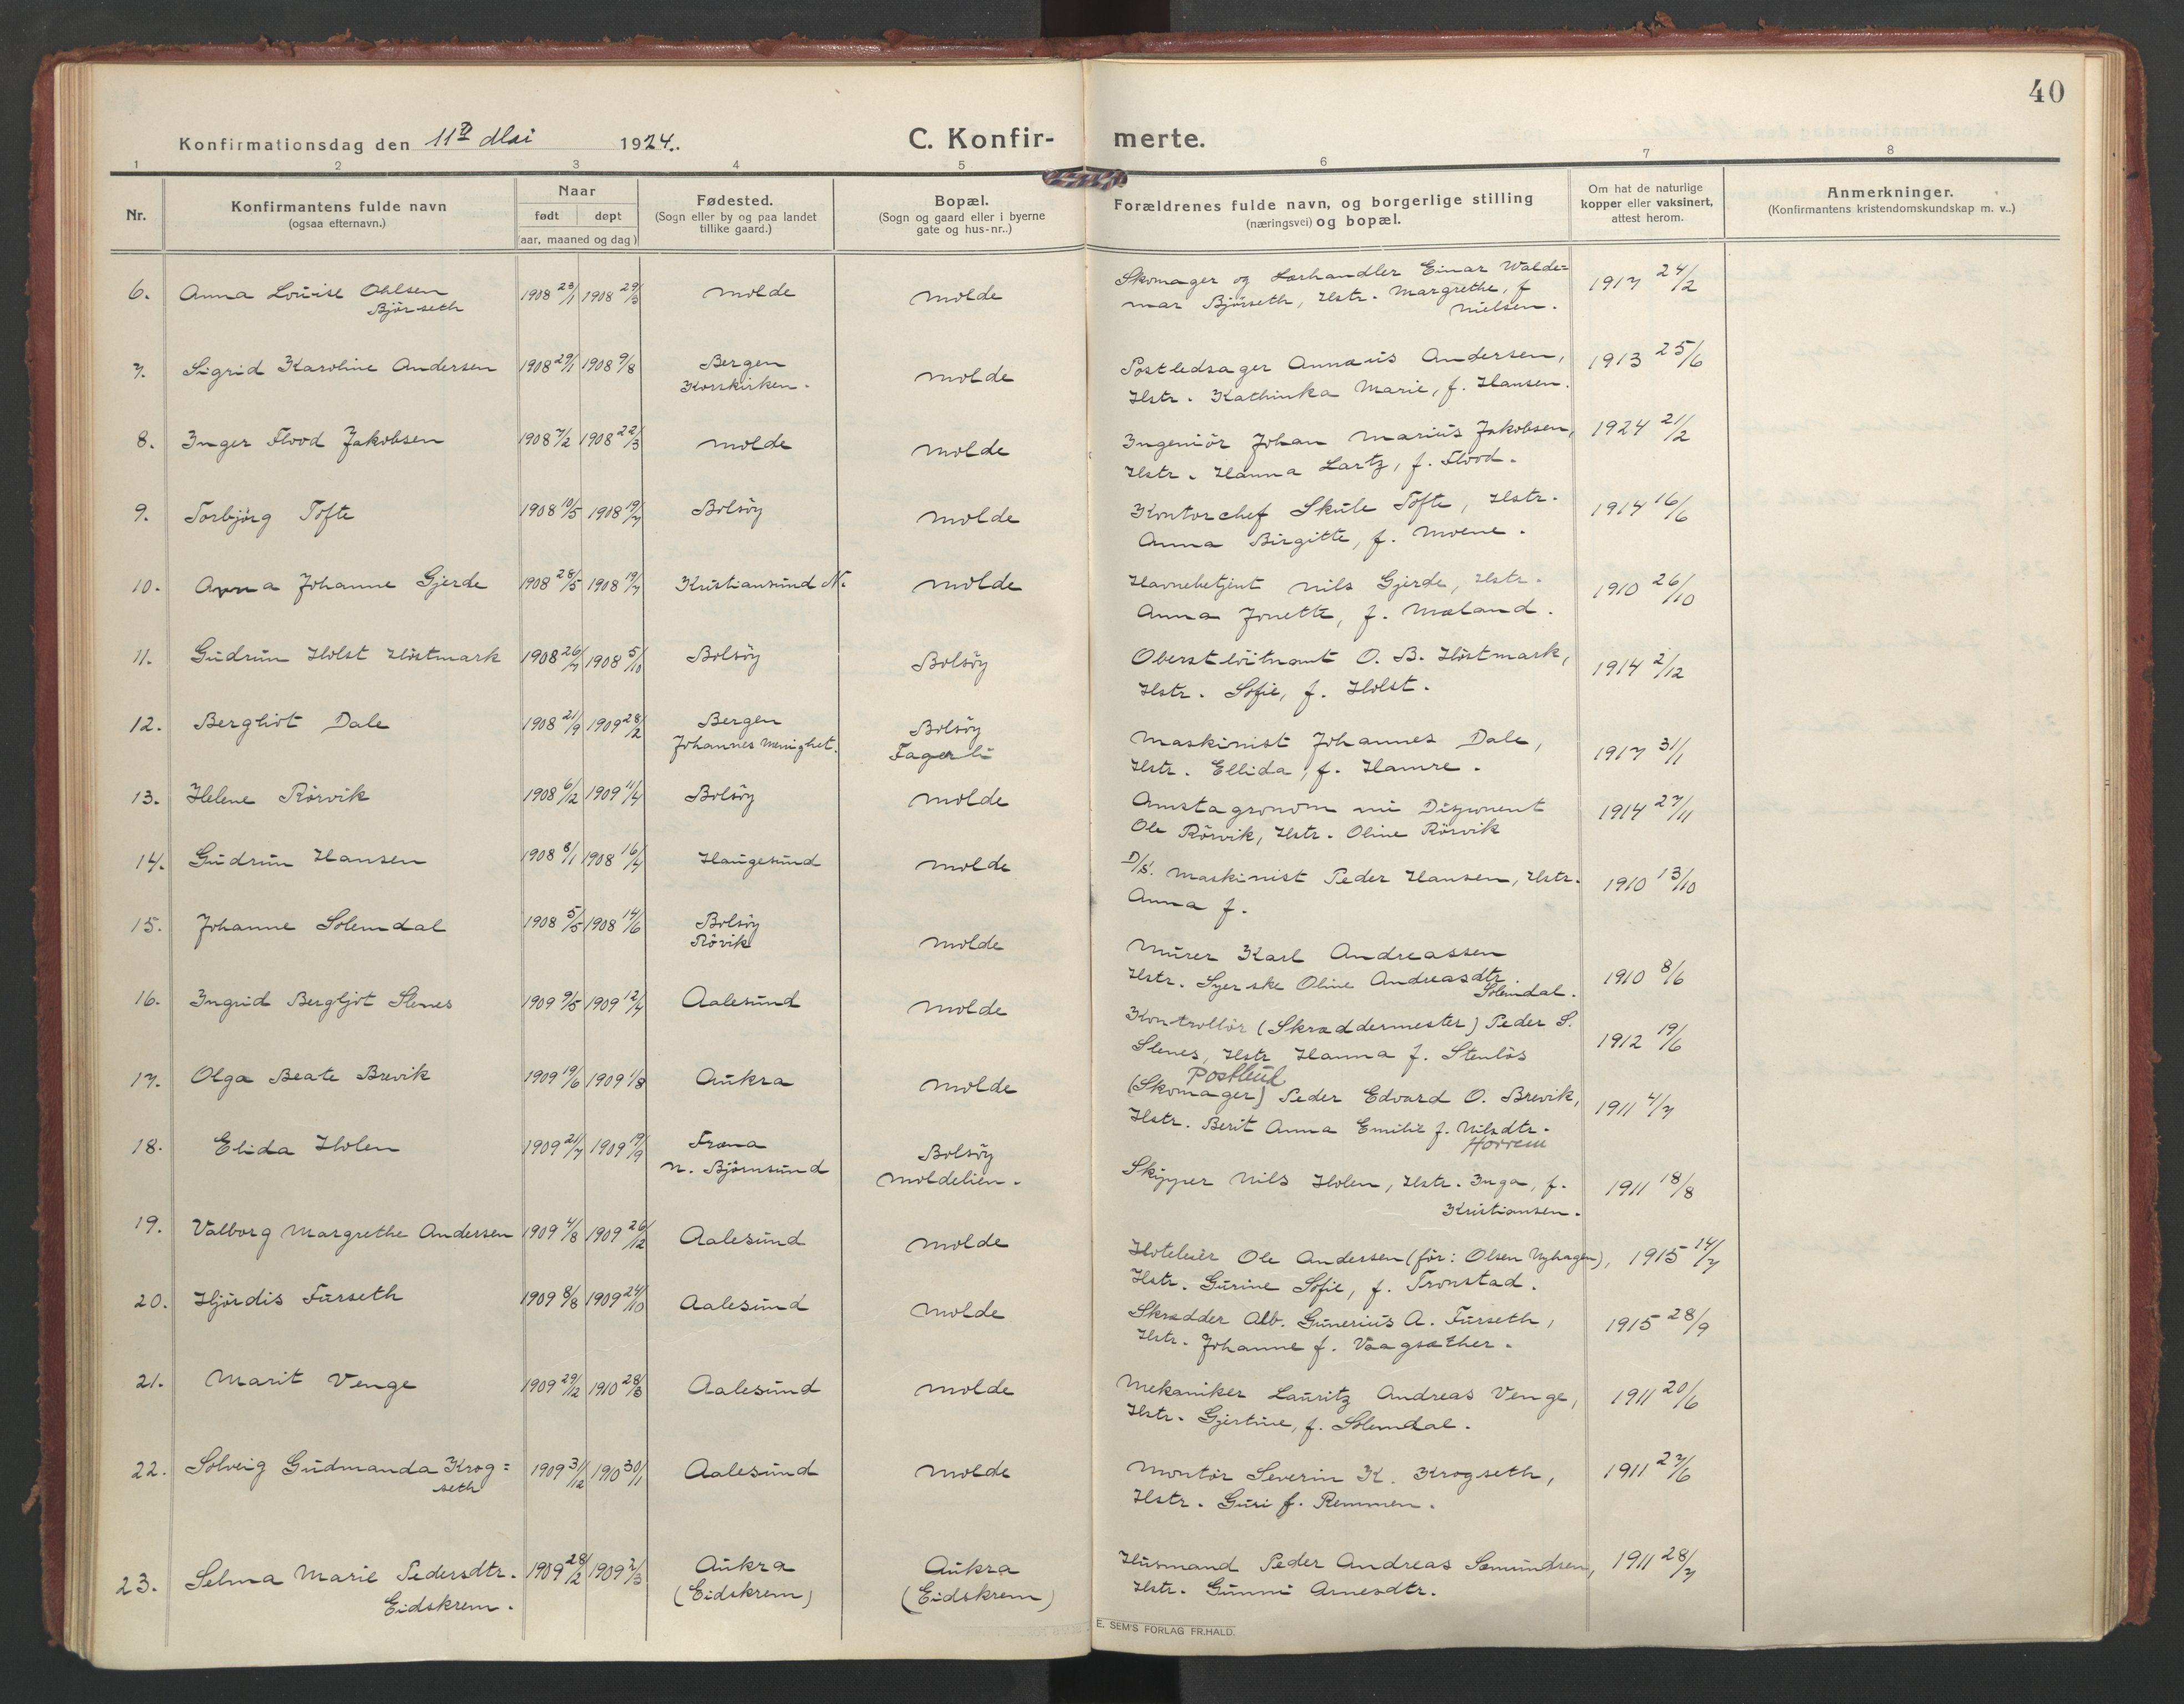 40
Konfirmationsdag den 11te Mai 1924.
C. Konfir-
merte.
1 2 3 4 5 6 7 8
Nr.
Konfirmantens fulde navn
(ogsaa efternavn.)
Naar
født døpt
(aar, maaned og dag)
Fødested.
(Sogn eller by og paa landet
tillike gaard.)
Bopæl.
(Sogn og gaard eller i byerne
gate og hus-nr..)
Forældrenes fulde navn, og borgerlige stilling
(næringsvei) og bopæl.
Om hat de naturlige
kopper eller vaksinert,
attest herom.
Anmerkninger.
(Konfirmantens kristendomskundskap m. v..)
6. Anna Louise Ohlsen 1908 23/1 1908 29/3 Molde Molde Skomager og Lærhandler Einar Walde=
Bjørseth mar Bjørseth, Hstr. Margrethe, f. 1917 24/2
Nielsen.
7. Sigrid Karoline Andersen 1908 29/1 1908 9/8 Bergen Molde Postledsager Annæus Andersen, 1913 25/6
Korskirken. Hstr. Kathinka Marie, f. Hansen.
8. Inger Flood Jakobsen 1908 7/2 1908 22/3 Molde Molde Ingeniör Johan Marius Jakobsen, 1924 21/2
Hstr. Hanna Lartz, f. Flood.
9. Torbjörg Tofte 1908 10/5 1908 19/7 Bolsöy Molde Kontorchef Skule Tofte, Hstr. 1914 16/6
Anna Birgitte, f. Moene.
10. Anna Johanne Gjerde 1908 28/5 1908 19/7 Kristiansund N. Molde Havnebetjent Nils Gjerde, Hstr. 1910 26/10
Anna Jonette, f. Mæland.
11. Gudrun Holst Höstmark 1908 26/7 1908 5/10 Bolsöy Bolsöy Oberstlöitnant O. B. Höstmark, 1914 2/12
Hstr. Sofie, f. Holst.
12. Bergliot Dale 1908 21/9 1909 28/2 Bergen Bolsöy Maskinist Johannes Dale, 1917 31/1
Johannes Menighet. Fagerli Hstr. Ellida, f. Hamre.
13. Helene Rörvik 1908 6/12 1909 11/4 Bolsöy Molde Amstagronom nu Disponent 1914 27/11
Ole Rörvik, Hstr. Oline Rörvik
14. Gudrun Hansen 1908 8/1 1908 16/4 Haugesund Molde D/S. Maskinist Peder Hansen, Hstr. 1910 13/10
Anna f.
15. Johanne Solemdal 1908 5/5 1908 14/6 Bolsöy Molde Murer Karl Andreassen
Rövik Hstr. Syerske Oline Andreasdtr. 1910 8/6
Solemdal.
16. Ingrid Bergljot Slenes 1909 9/5 1909 12/7 Aalesund Molde Kontrollör (Skræddermester) Peder S. 1912 19/6
Slenes, Hstr Hanna f. Stenlös
17. Olga Beate Brevik 1909 19/6 1909 1/8 Aukra Molde Postbud
(Skomager) Peder Edvard O. Brevik, 1911 4/7
Hstr. Berit Anna Emilie f. Nilsdtr.
Horrem
18. Elida Holen 1909 21/7 1909 19/9 Fræna Bolsöy Skipper Nils Holen, Hstr. Inga, f. 1911 18/8
N. Björnsund Moldelien. Kristiansen.
19. Valborg Margrethe Andersen 1909 4/8 1909 26/12 Aalesund Molde Hoteleier Ole Andersen (för: Olsen Nyhagen), 1915 14/7
Hstr. Gurine Sofie, f. Tronstad.
20. Hjördis Furseth 1909 8/8 1909 24/10 Aalesund Molde Skrædder Alb. Gunerius A. Furseth, 1915 28/9
Hstr. Johanne f. Vaagsæther.
21. Marit Venge 1909 29/12 1910 28/3 Aalesund Molde Mekaniker Lauritz Andreas Venge, 1911 20/6
Hstr. Gjertine, f. Solemdal.
22. Solveig Gudmanda Krog= 1909 31/12 1910 30/1 Aalesund Molde Montör Severin K. Krogseth, 1911 27/6
seth Hstr. Guri f. Remmen.
23. Selma Marie Pedersdtr. 1909 28/2 1909 2/3 Aukra Aukra Husmand Peder Andreas Semundsen, 1911 28/7
Eidskrem. (Eidskrem) (Eidskrem) Hstr. Gunni Arnesdtr.
E. SEM'S FORLAG FR.HALD.